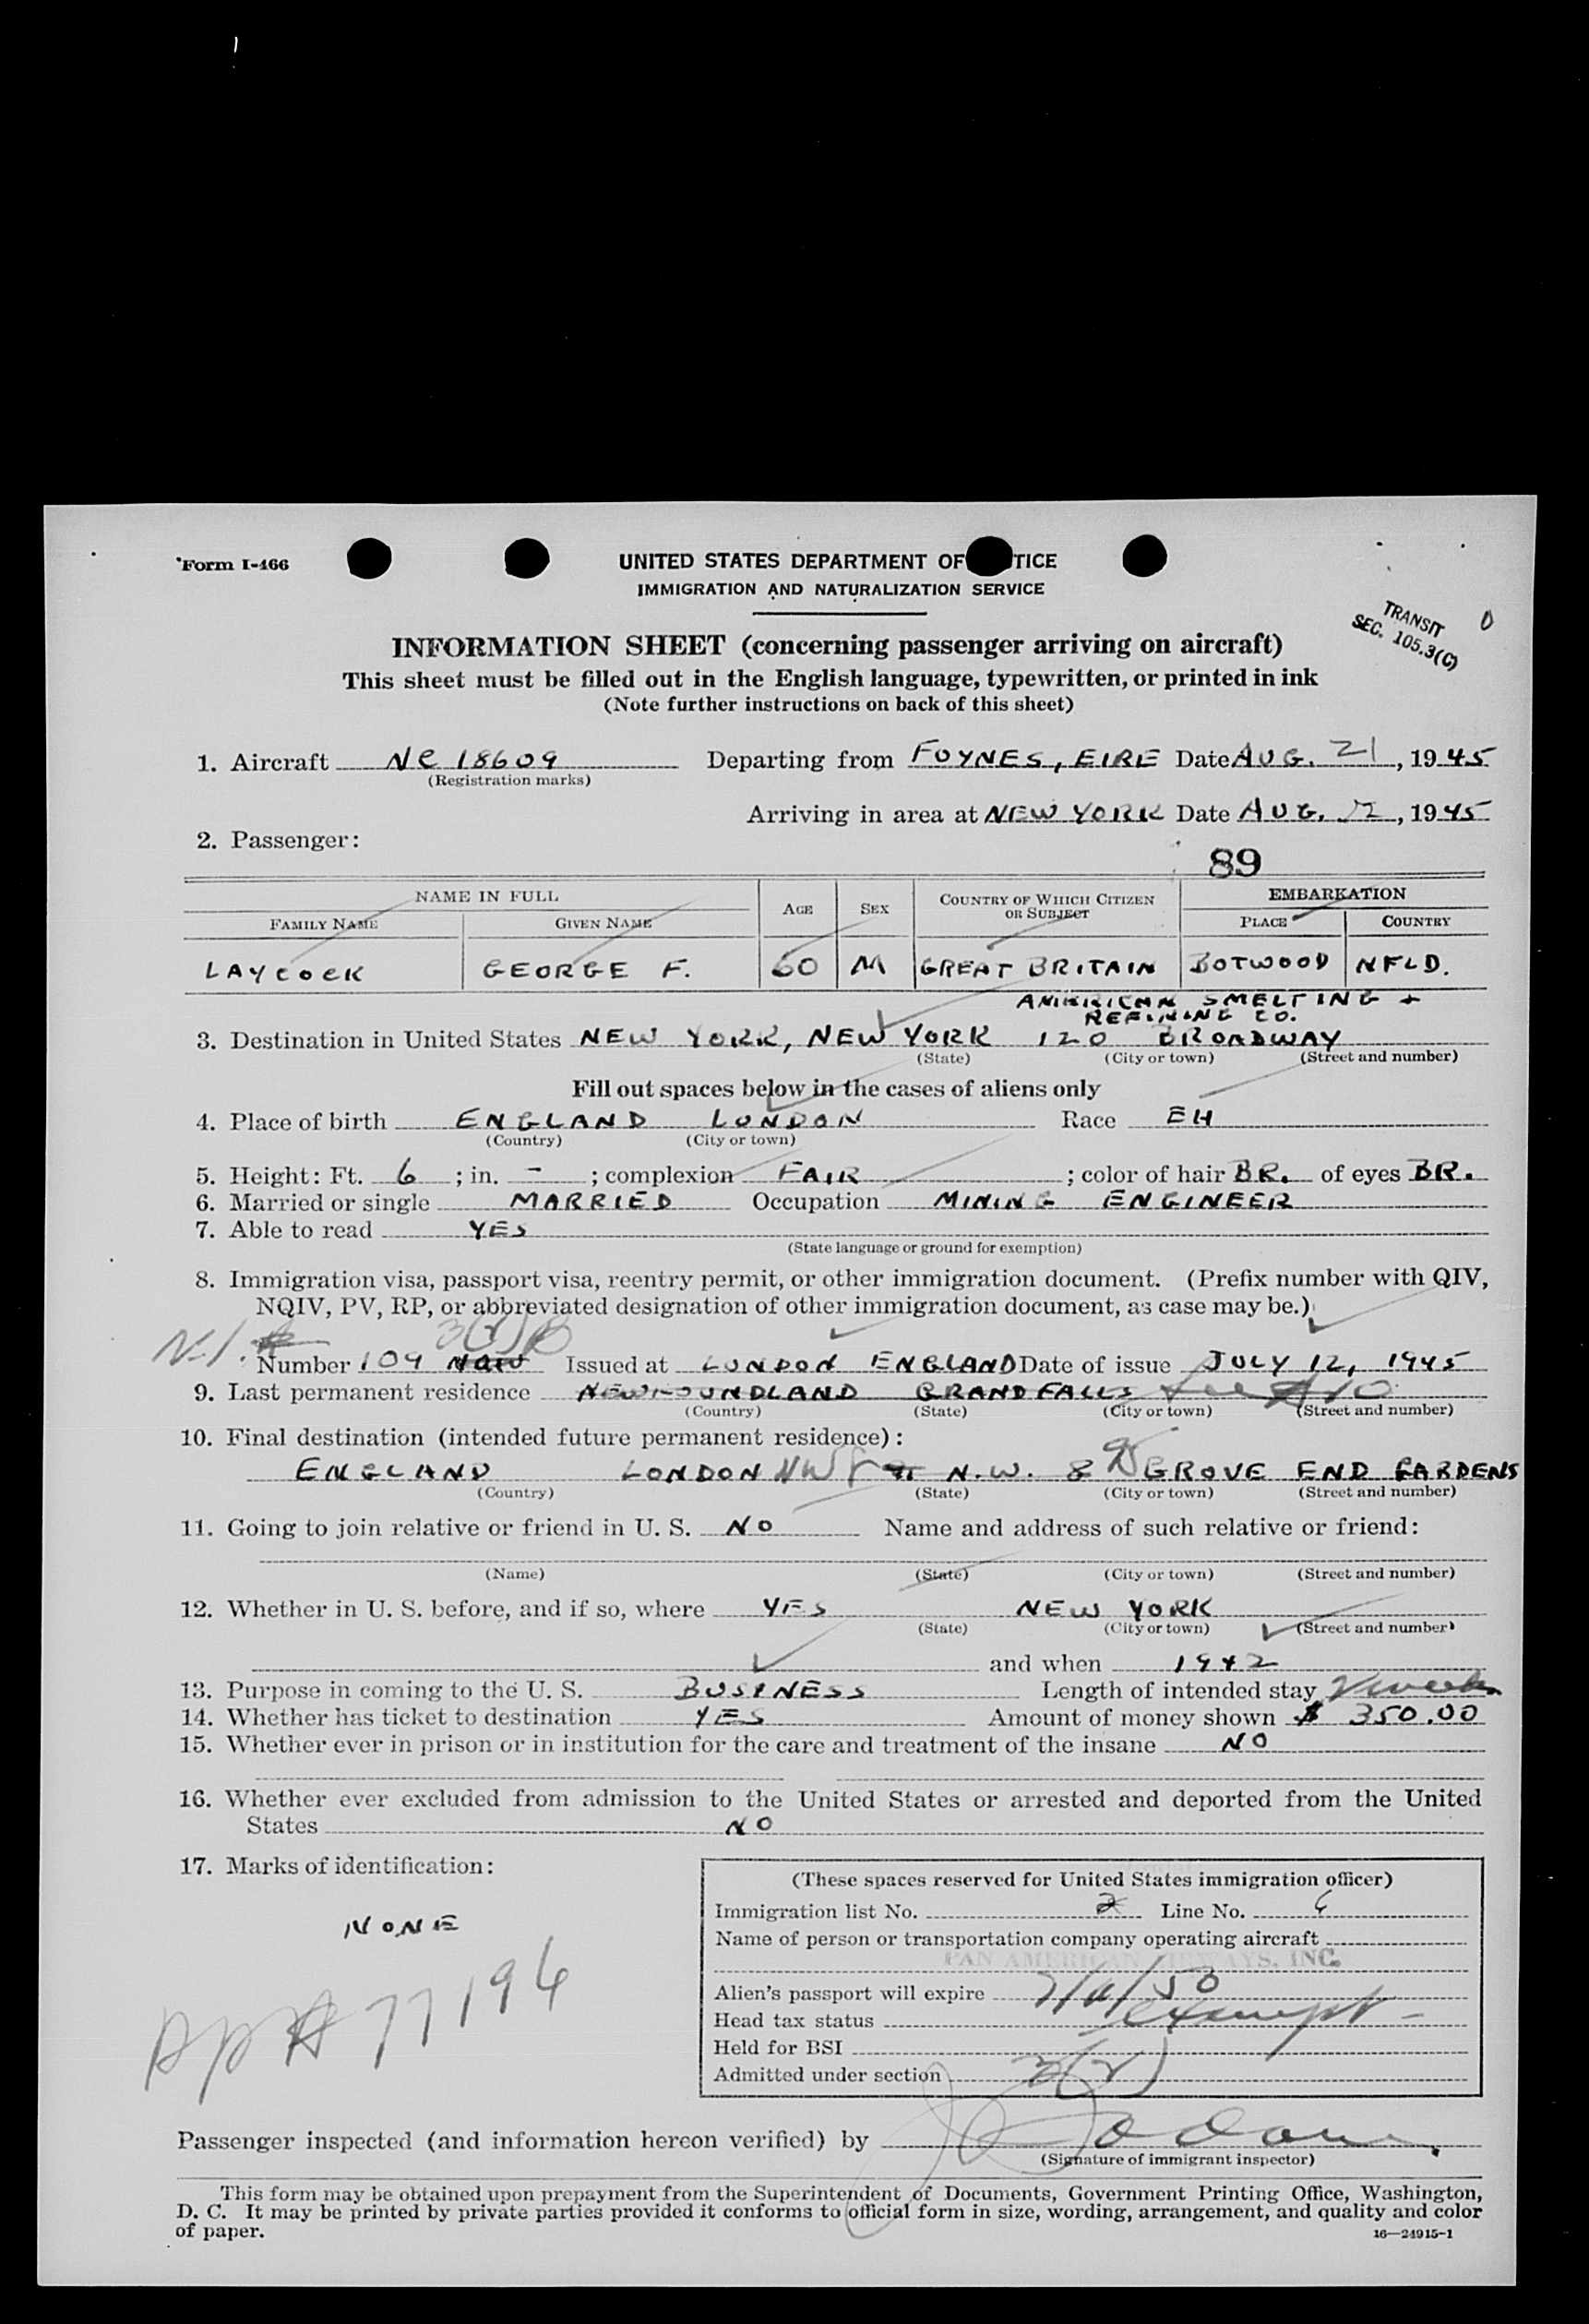 Form I-466
UNITED STATES DEPARTMENT OF TICE
IMMIGRATION AND NATURALIZATION SERVICE
TRANSIT
SEC. 105.3(C)
INFORMATION SHEET (concerning passenger arriving on aircraft)
This sheet must be filled out in the English language, typewritten, or printed in ink
(Note further instructions on back of this sheet)
1. Aircraft NC 18609 Departing from FOYNES, EIRE Date AUG. 21, 1945
(Registration marks)
Arriving in area at NEW YORK Date AUG. , 1945
2. Passenger:
89
NAME IN FULL AGE SEX COUNTRY OF WHICH CITIZEN OR SUBJECT EMBARKATION
FAMILY NAME GIVEN NAME PLACE COUNTRY
LAYCOCK GEORGE F. 60 M GREAT BRITAIN BOTWOOD NFLD.
AMERICAN SMELTING +
REFINING CO.
3. Destination in United States NEW YORK, NEW YORK 120 BROADWAY
(State) (City or town) (Street and number)
Fill out spaces below in the cases of aliens only
4. Place of birth ENGLAND LONDON Race EH
(Country) (City or town)
5. Height: Ft. 6 ; in. - ; complexion FAIR ; color of hair BR. of eyes BR.
6. Married or single MARRIED Occupation MINING ENGINEER
7. Able to read YES
(State language or ground for exemption)
8. Immigration visa, passport visa, reentry permit, or other immigration document. (Prefix number with QIV,
NQIV, PV, RP, or abbreviated designation of other immigration document, as case may be.)
3(2)B
Number 109 Issued at LONDON ENGLAND Date of issue JULY 12, 1945
9. Last permanent residence NEWFOUNDLAND GRAND FALLS
(Country) (State) (City or town) (Street and number)
10. Final destination (intended future permanent residence):
ENGLAND LONDON NW8 N.W. 8 GROVE END GARDENS
(Country) (State) (City or town) (Street and number)
11. Going to join relative or friend in U. S. NO Name and address of such relative or friend:
(Name) (State) (City or town) (Street and number)
12. Whether in U. S. before, and if so, where YES NEW YORK
(State) (City or town) (Street and number)
and when 1942
13. Purpose in coming to the U. S. BUSINESS Length of intended stay 2 weeks
14. Whether has ticket to destination YES Amount of money shown $ 350.00
15. Whether ever in prison or in institution for the care and treatment of the insane NO
16. Whether ever excluded from admission to the United States or arrested and deported from the United
States NO
17. Marks of identification:
NONE
PP# 77196
(These spaces reserved for United States immigration officer)
Immigration list No. 2 Line No. 6
Name of person or transportation company operating aircraft
PAN AMERICAN AIRWAYS, INC.
Alien's passport will expire 7/11/50
Head tax status exempt -
Held for BSI
Admitted under section 3(2)
Passenger inspected (and information hereon verified) by
(Signature of immigrant inspector)
This form may be obtained upon prepayment from the Superintendent of Documents, Government Printing Office, Washington,
D. C. It may be printed by private parties provided it conforms to official form in size, wording, arrangement, and quality and color
of paper.
16—24915-1